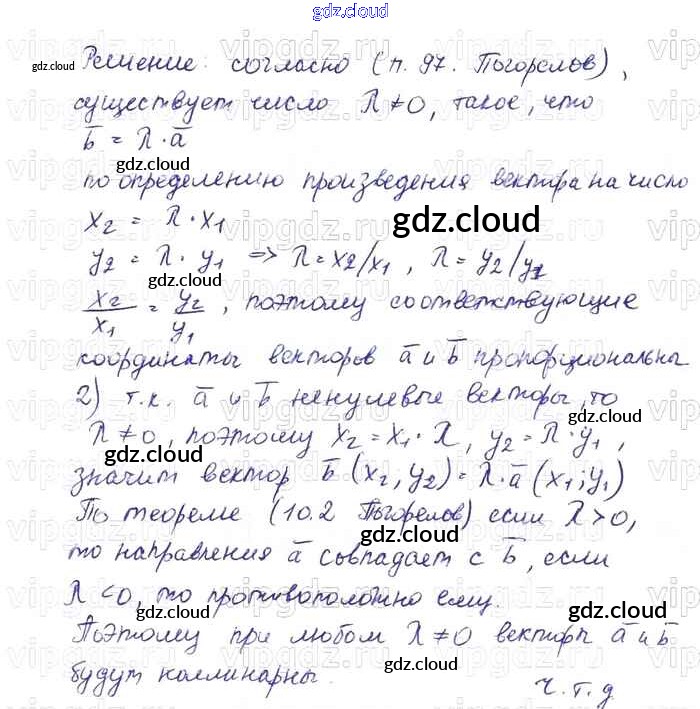 gdz.cloud
Решение: согласно (п. 97. Погорелов),
существует число λ≠0, такое, что
b̅ = λ·a̅
по определению произведения вектора на число
x₂ = λ·x₁
y₂ = λ·y₁ => λ=x₂/x₁, λ=y₂/y₁
x₂/x₁ = y₂/y₁, поэтому соответствующие
координаты векторов a̅ и b̅ пропорциональны
2) т.к. a̅ и b̅ ненулевые векторы, то
λ≠0, поэтому x₂=x₁·λ, y₂=λ·y₁,
значит вектор b̅(x₂; y₂)=λ·a̅(x₁; y₁)
По теореме (10.2 Погорелов) если λ>0,
то направления a̅ совпадает с b̅, если
λ<0, то противоположно ему.
Поэтому при любом λ≠0 векторы a̅ и b̅
будут коллинарны.
ч.т.д